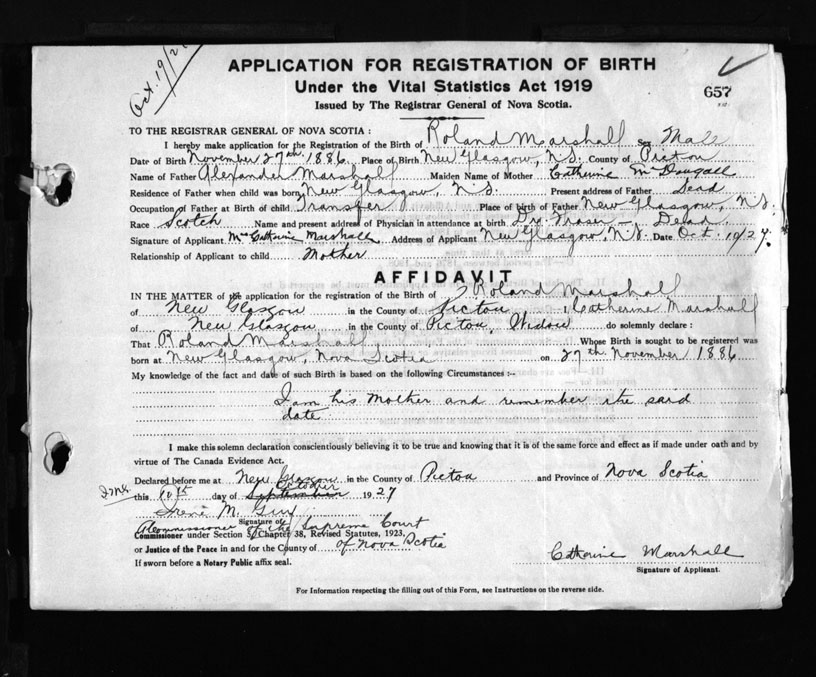 Oct. 19/27
APPLICATION FOR REGISTRATION OF BIRTH
Under the Vital Statistics Act 1919
657
Issued by The Registrar General of Nova Scotia.
TO THE REGISTRAR GENERAL OF NOVA SCOTIA:
I hereby make application for the Registration of the Birth of Roland Marshall Sex Male
Date of Birth November 27th, 1886 Place of Birth New Glasgow, N.S. County of Pictou
Name of Father Alexander Marshall Maiden Name of Mother Catherine McDougall
Residence of Father when child was born New Glasgow, N.S. Present address of Father Dead
Occupation of Father at Birth of child Place of birth of Father New Glasgow, N.S.
Race Scotch Name and present address of Physician in attendance at birth Dr. Fraser - Dead
Signature of Applicant Mrs Catherine Marshall Address of Applicant New Glasgow, N.S. Date Oct 10/27.
Relationship of Applicant to child Mother
AFFIDAVIT
IN THE MATTER of the application for the registration of the Birth of Roland Marshall
of New Glasgow in the County of Pictou, Catherine Marshall
of New Glasgow in the County of Pictou, Widow do solemnly declare:
That Roland Marshall Whose Birth is sought to be registered was
born at New Glasgow, Nova Scotia on 27th November 1886
My knowledge of the fact and date of such Birth is based on the following Circumstances :-
I am his Mother and remember the said
date
I make this solemn declaration conscientiously believing it to be true and knowing that it is of the same force and effect as if made under oath and by
virtue of The Canada Evidence Act.
Declared before me at New Glasgow in the County of Pictou and Province of Nova Scotia
October
this 10th day of September 1927
Irene M.
Signature of
A Commissioner of the Supreme Court
Commissioner under Section 5, Chapter 38, Revised Statutes, 1923,
or Justice of the Peace in and for the County of of Nova Scotia
Catherine Marshall
If sworn before a Notary Public affix seal.
Signature of Applicant.
For Information respecting the filling out of this Form, see Instructions on the reverse side.